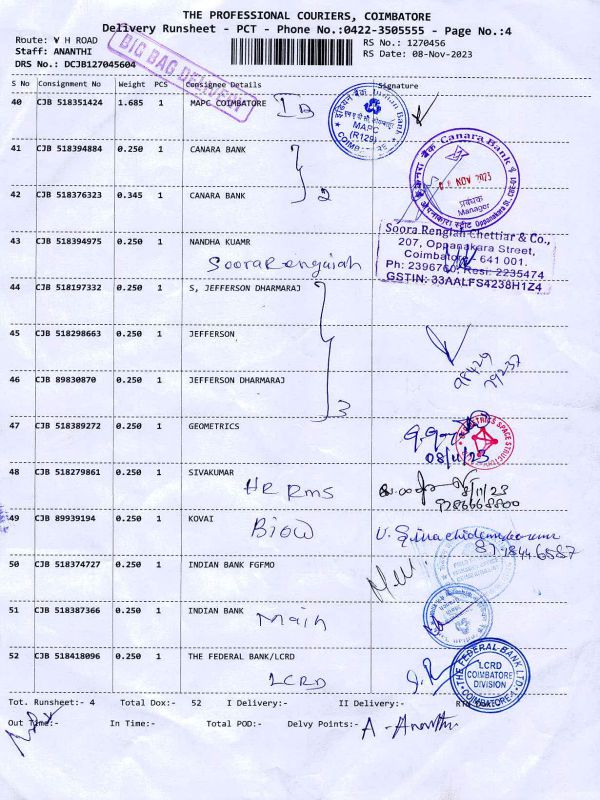 THE PROFESSIONAL COURIERS, COIMBATORE
Delivery Runsheet - PCT - Phone No.:0422-3505555 - Page No.:4
Route: V H ROAD
RS No.: 1270456
Staff: ANANTHI
RS Date: 08-Nov-2023
DRS No.: DCJB127045604
BIG BAG DELIVERY
S No Consignment No Weight PCS Consignee Details Signature
40 CJB 518351424 1.685 1 MAPC COIMBATORE IB
इंडियन बैंक Indian Bank
MAPC
(R129)
COIMBATORE
41 CJB 518394884 0.250 1 CANARA BANK
केनरा बैंक Canara Bank
08 NOV 2023
प्रबंधक
Manager
42 CJB 518376323 0.345 1 CANARA BANK 2
Soora Rengiah Chettiar & Co.,
207, Oppanakara Street,
Coimbatore - 641 001.
Ph: 2396760, Resi: 2235474
GSTIN: 33AALFS4238H1Z4
43 CJB 518394975 0.250 1 NANDHA KUAMR
Soora Rengaiah
44 CJB 518197332 0.250 1 S, JEFFERSON DHARMARAJ
45 CJB 518298663 0.250 1 JEFFERSON
98429
79237
46 CJB 89830870 0.250 1 JEFFERSON DHARMARAJ
3
47 CJB 518389272 0.250 1 GEOMETRICS
08/11/23
48 CJB 518279861 0.250 1 SIVAKUMAR
HR Rms
8/11/23
9286668800
49 CJB 89939194 0.250 1 KOVAI
Biow
50 CJB 518374727 0.250 1 INDIAN BANK FGFMO
51 CJB 518387366 0.250 1 INDIAN BANK
Main
52 CJB 518418096 0.250 1 THE FEDERAL BANK/LCRD
LCRD
THE FEDERAL BANK LTD.
LCRD
COIMBATORE
DIVISION
COIMBATORE-1
Tot. Runsheet:- 4 Total Dox:- 52 I Delivery:- II Delivery:-
Out Time:- In Time:- Total POD:- Delvy Points:- A - Ananthi